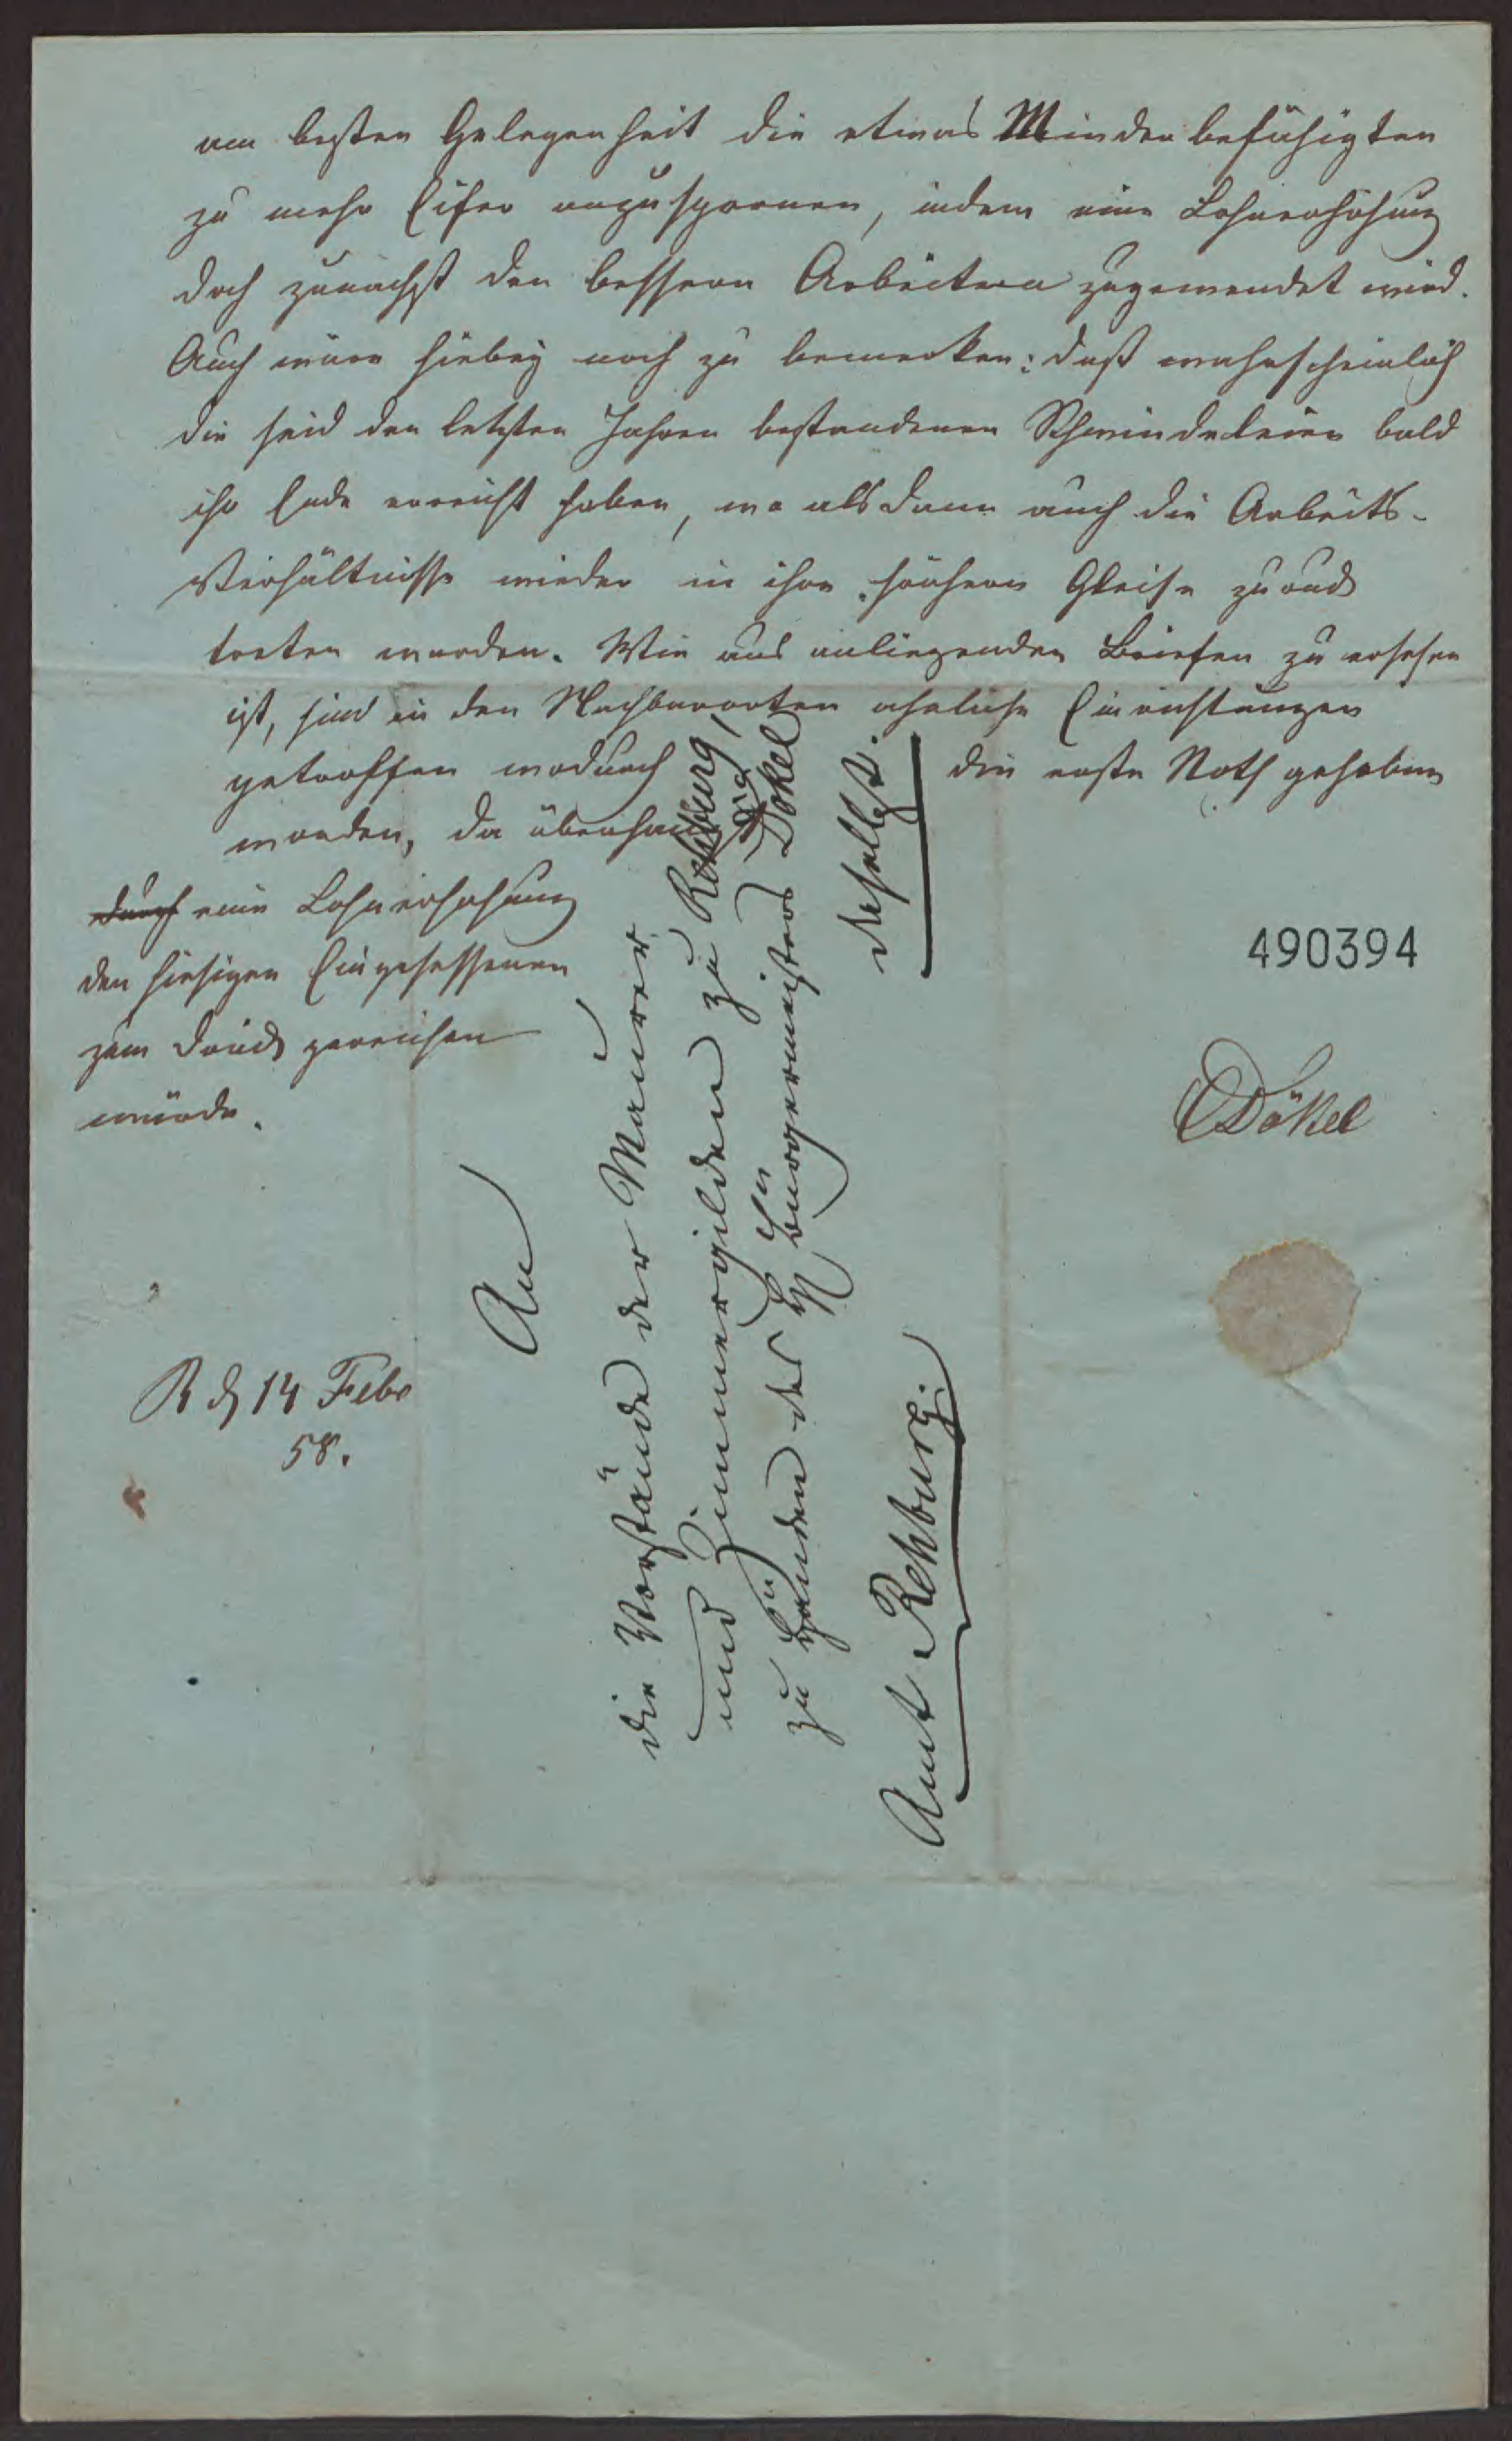 am besten Gelegenheit die etwas Minder befähigten
zu mehr Eifer anzuspornen, indem eine Lohnerhöhung
doch zunächst den bessern Arbeitern zugewendet wird.
Auch wäre hiebey noch zu bemerken: daß wahrscheinlich
die seid den letzten Jahren bestandenen Schwindeleien bald
ihr Ende erreicht haben, wo alsdann auch die Arbeits-
Verhältnisse wieder in ihre frühern Gleise zurück
treten werden. Wie aus anliegenden Briefen zu ersehen
ist, sind in den Nachbarorten ähnliche Einrichtungen
getroffen wodurch die erste Noth gehoben
worden, da überhaupt
durch eine Lohnerhöhung
den hiesigen Eingesessenen
zum Druck gereichen
würde.
490394
CDökel
R d 14 Febr
58.
An
die Vorstände der Maurer
und Zimmergilden zu Rehburg,
zu Händen des Hn Burgermeisters Dökel
daselbst.
Amt Rehburg.